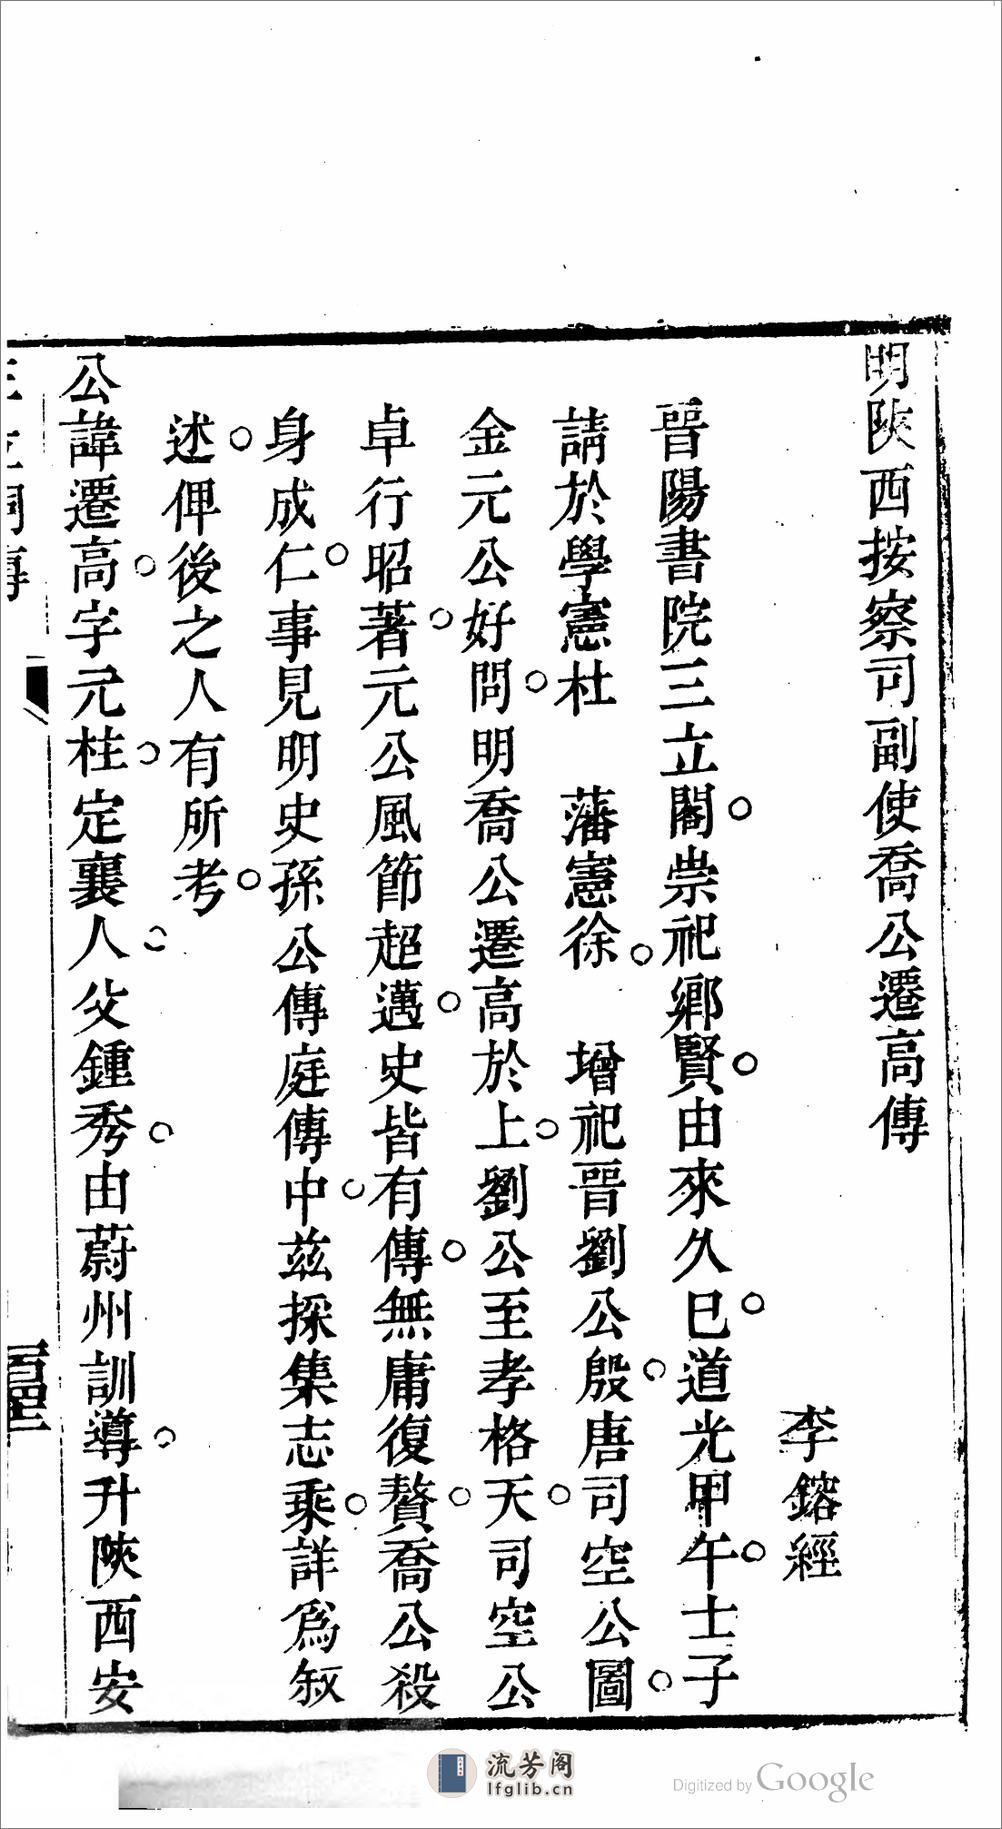 明陜西按察司副使喬公遷高傳
李鎔經
晉陽書院三立閣。崇祀鄉賢。由來久已。道光甲午。士子
請於學憲杜　藩憲徐。　增祀晉劉公殷。唐司空公圖。
金元公好問。明喬公遷高於上。劉公至孝格天。司空公
卓行昭著。元公風節超邁。史皆有傳。無庸復贅。喬公殺
身成仁。事見明史孫公傳庭傳中。茲採集志乘。詳爲叙
述。俾後之人有所考。
公諱遷高。字元柱。定襄人。父鍾秀。由蔚州訓導。升陜西安
流芳阁
lfglib.cn
Digitized by Google